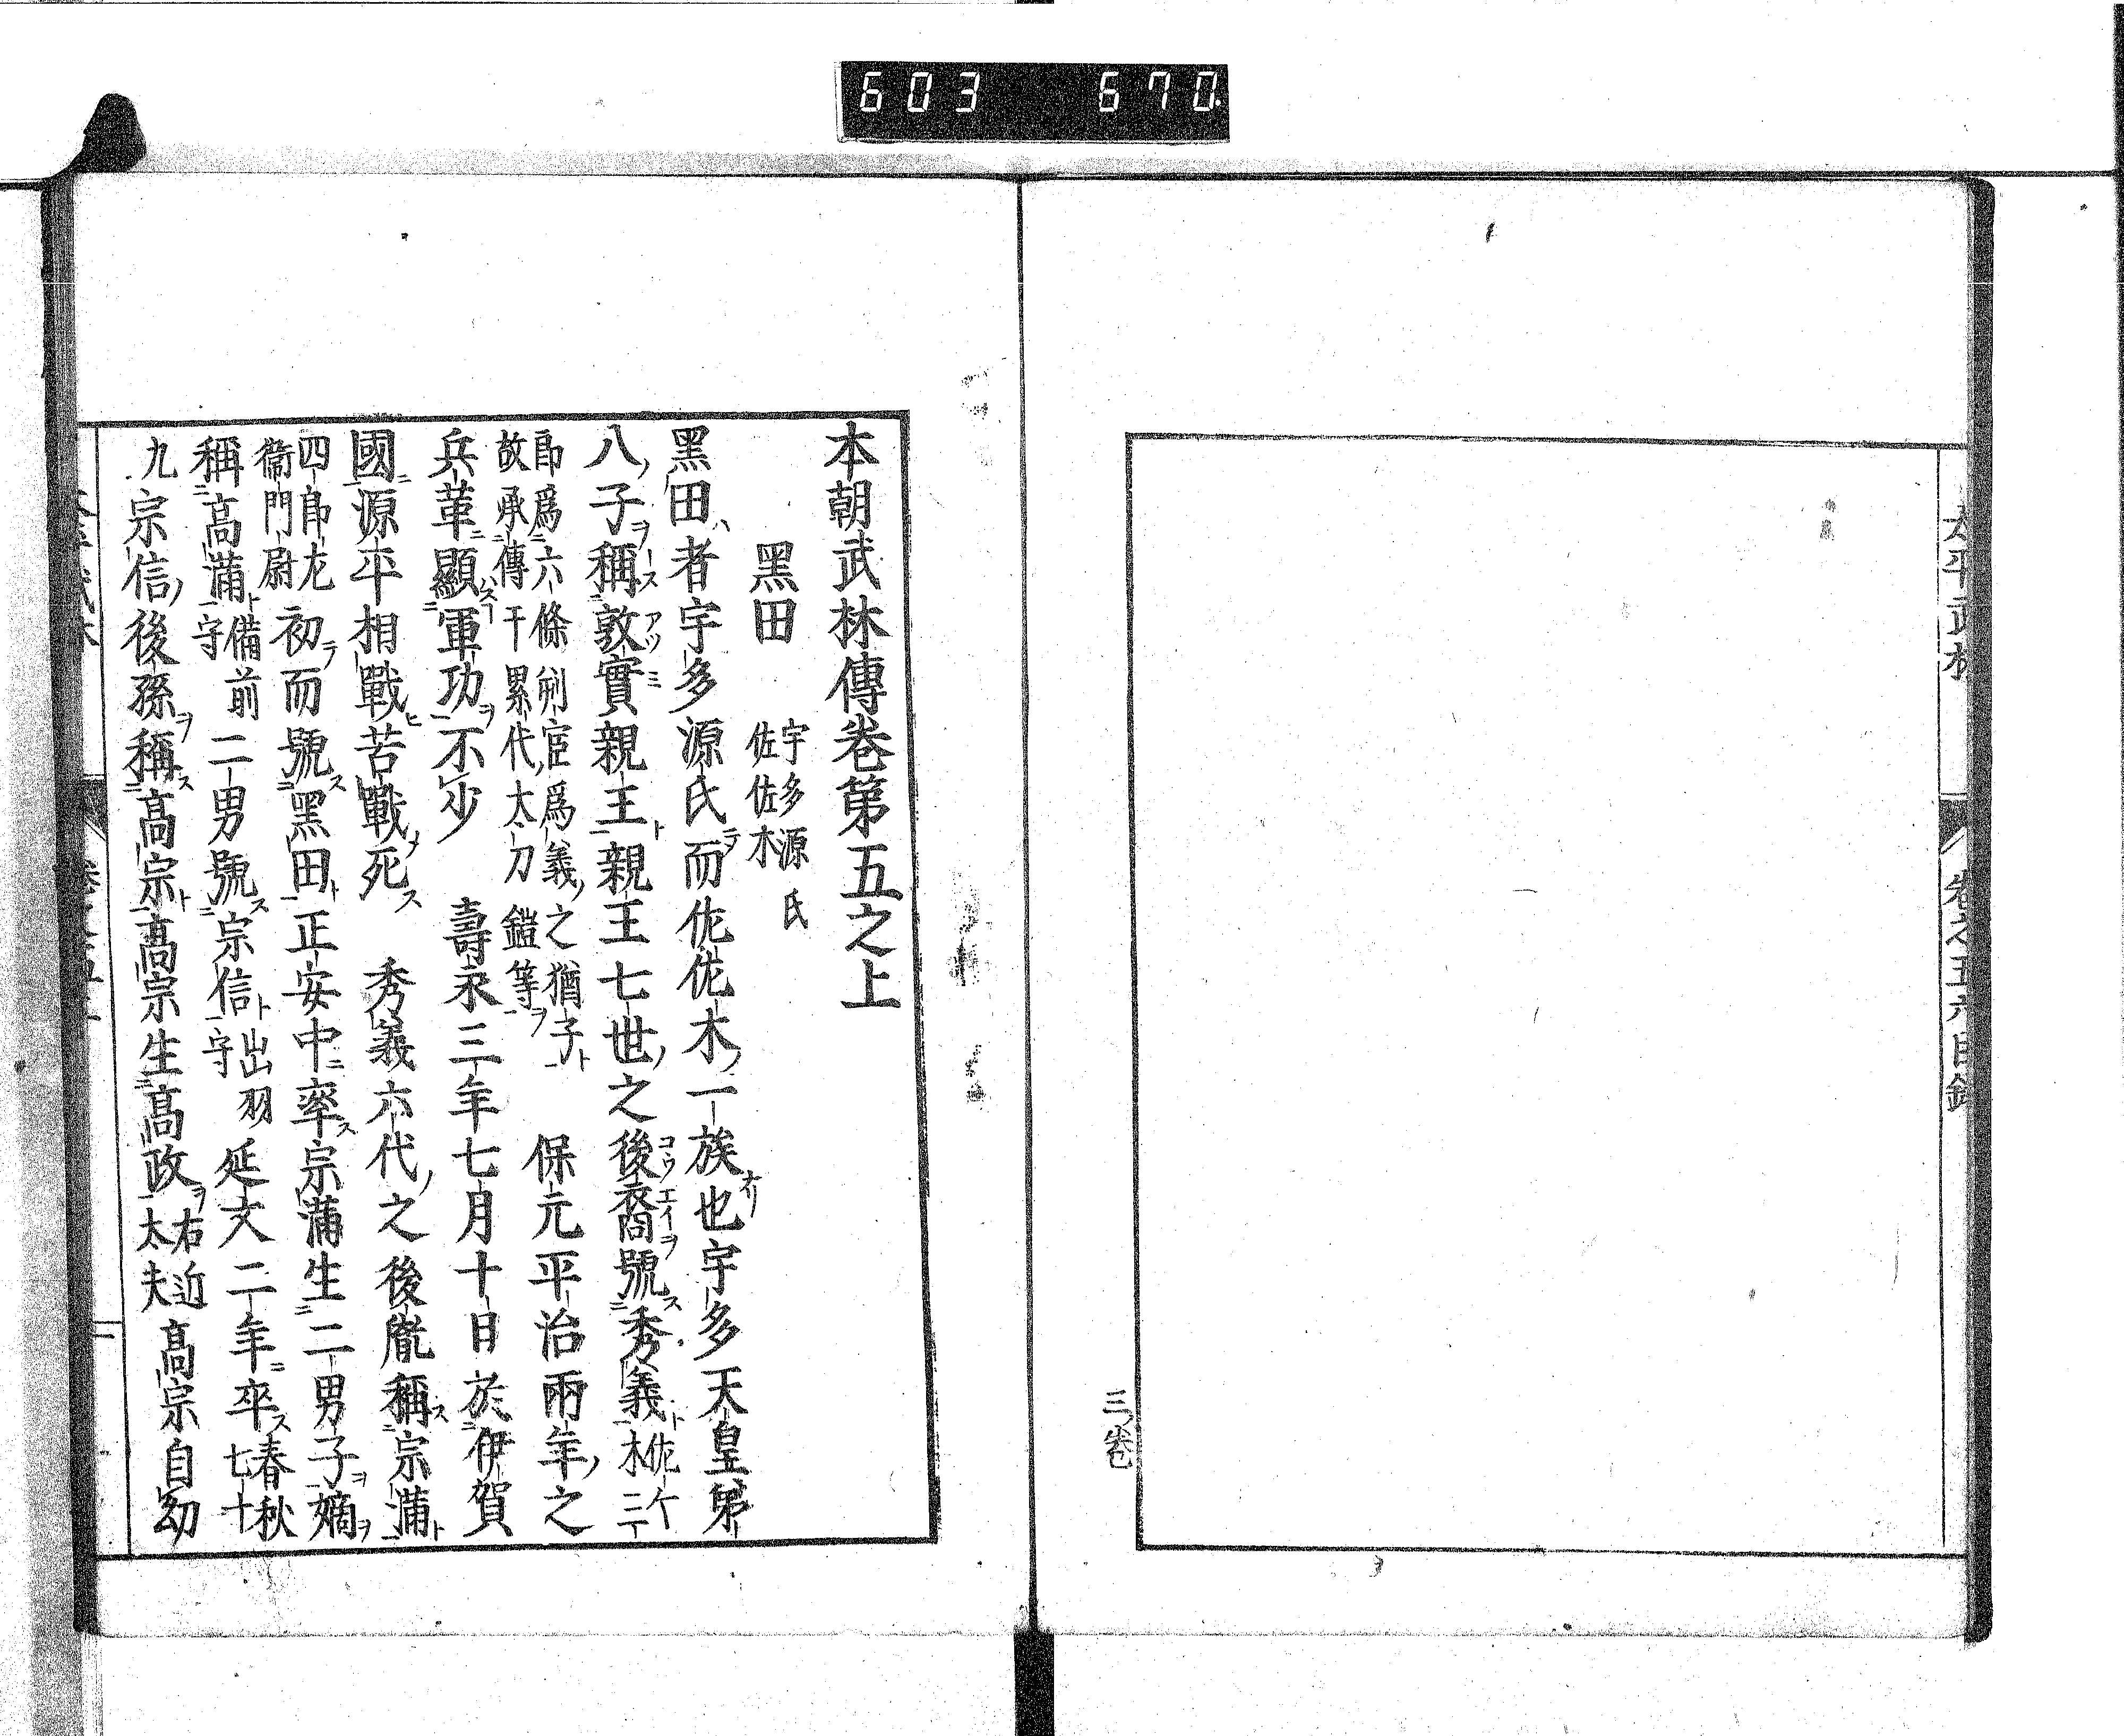 603 670
太平武林
卷之五六目錄
三卷
本朝武林傳卷第五之上
黑田 宇多源氏
佐佐木
黑田者宇多源氏而佐佐木一族也宇多天皇第
八子稱敦實親王親王七世之後裔號秀義佐々
木三
郎爲六條判官爲義之猶子
故承傳干累代太刀鎧等
保元平治兩年之
兵革顯軍功不少 壽永三年七月十日於伊賀
國源平相戰苦戰死 秀義六代之後胤稱宗滿
四郎左
衞門尉
初而號黑田正安中卒宗滿生二男子嫡
稱高滿備前
守
二男號宗信出羽
守
延文二年卒春秋
七十
九宗信後孫稱高宗高宗生高政右近
太夫
高宗自幼